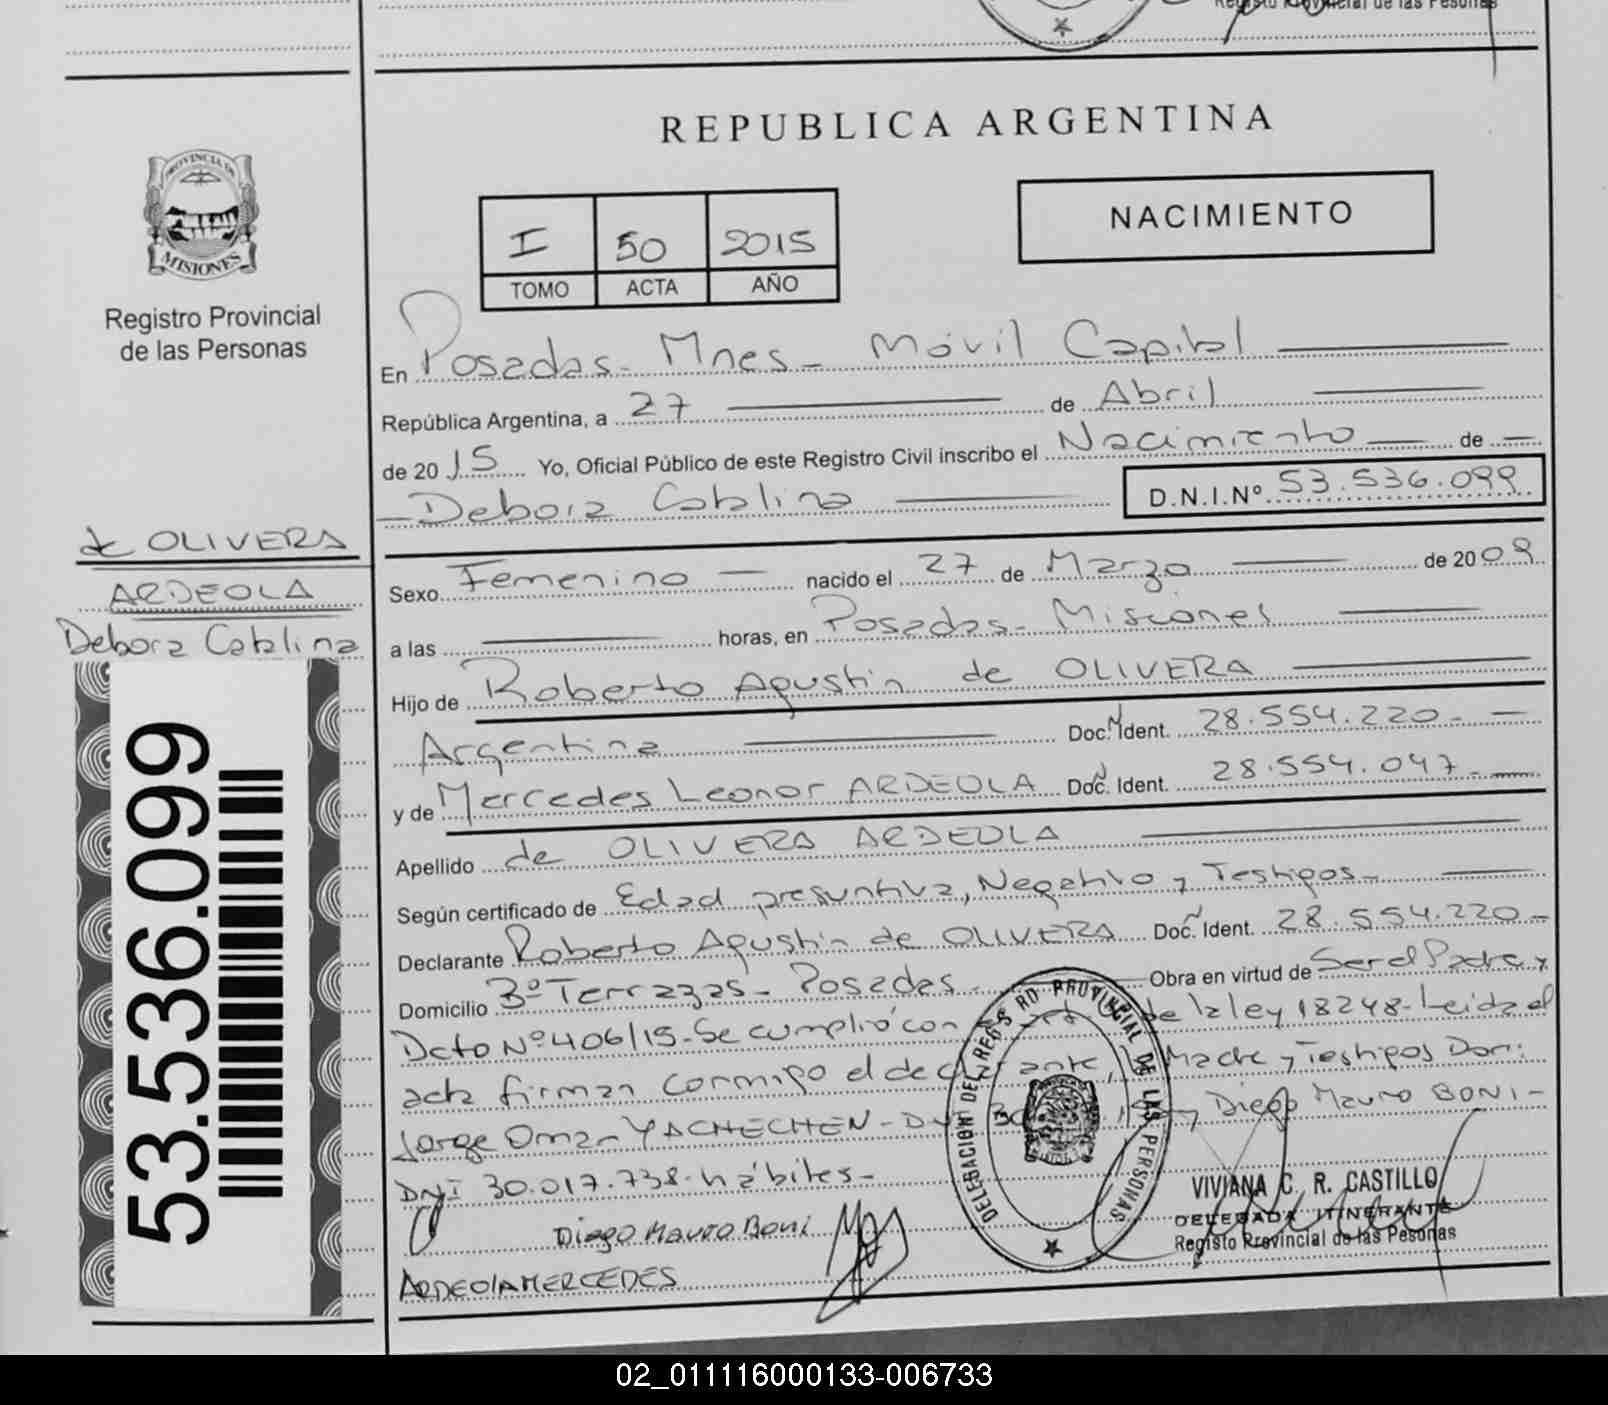 Registro Provincial de las Pesonas
REPUBLICA ARGENTINA
PROVINCIA DE
MISIONES
Registro Provincial
de las Personas
I 50 2015
TOMO ACTA AÑO
NACIMIENTO
En Posadas - Mnes - Móvil Capital
República Argentina, a 27 de Abril
de 2015 Yo, Oficial Público de este Registro Civil inscribo el Nacimiento de
Debora Catalina D.N.I.Nº 53.536.099
de OLIVERA
ARDEOLA
Debora Catalina
53.536.099
Sexo Femenino nacido el 27 de Marzo de 2009
a las horas, en Posadas - Misiones
Hijo de Roberto Agustín de OLIVERA
Argentina Doc. Ident. 28.554.220.-
y de Mercedes Leonor ARDEOLA Doc. Ident. 28.554.047.-
Apellido de OLIVERA ARDEOLA
Según certificado de Edad presuntiva, Negativo y Testigos.-
Declarante Roberto Agustín de OLIVERA Doc. Ident. 28.554.220.-
Domicilio 3º Terrazas - Posadas - Obra en virtud de Ser el Padre y
Dcto Nº 406/15 - Se cumplió con de la ley 18248 - Leida el
acta firman conmigo el declarante, Madre y Testigos Don:
Jorge Omar YACHECHEN - DNI y Diego Mauro BONI -
DNI 30.017.738 - hábiles -
Diego Mauro Boni
ARDEOlA MERCEDES
DELEGACION DEL REGISTRO PROVINCIAL DE LAS PERSONAS
VIVIANA C. R. CASTILLO
DELEGADA ITINERANTE
Registo Provincial de las Pesonas
02_011116000133-006733